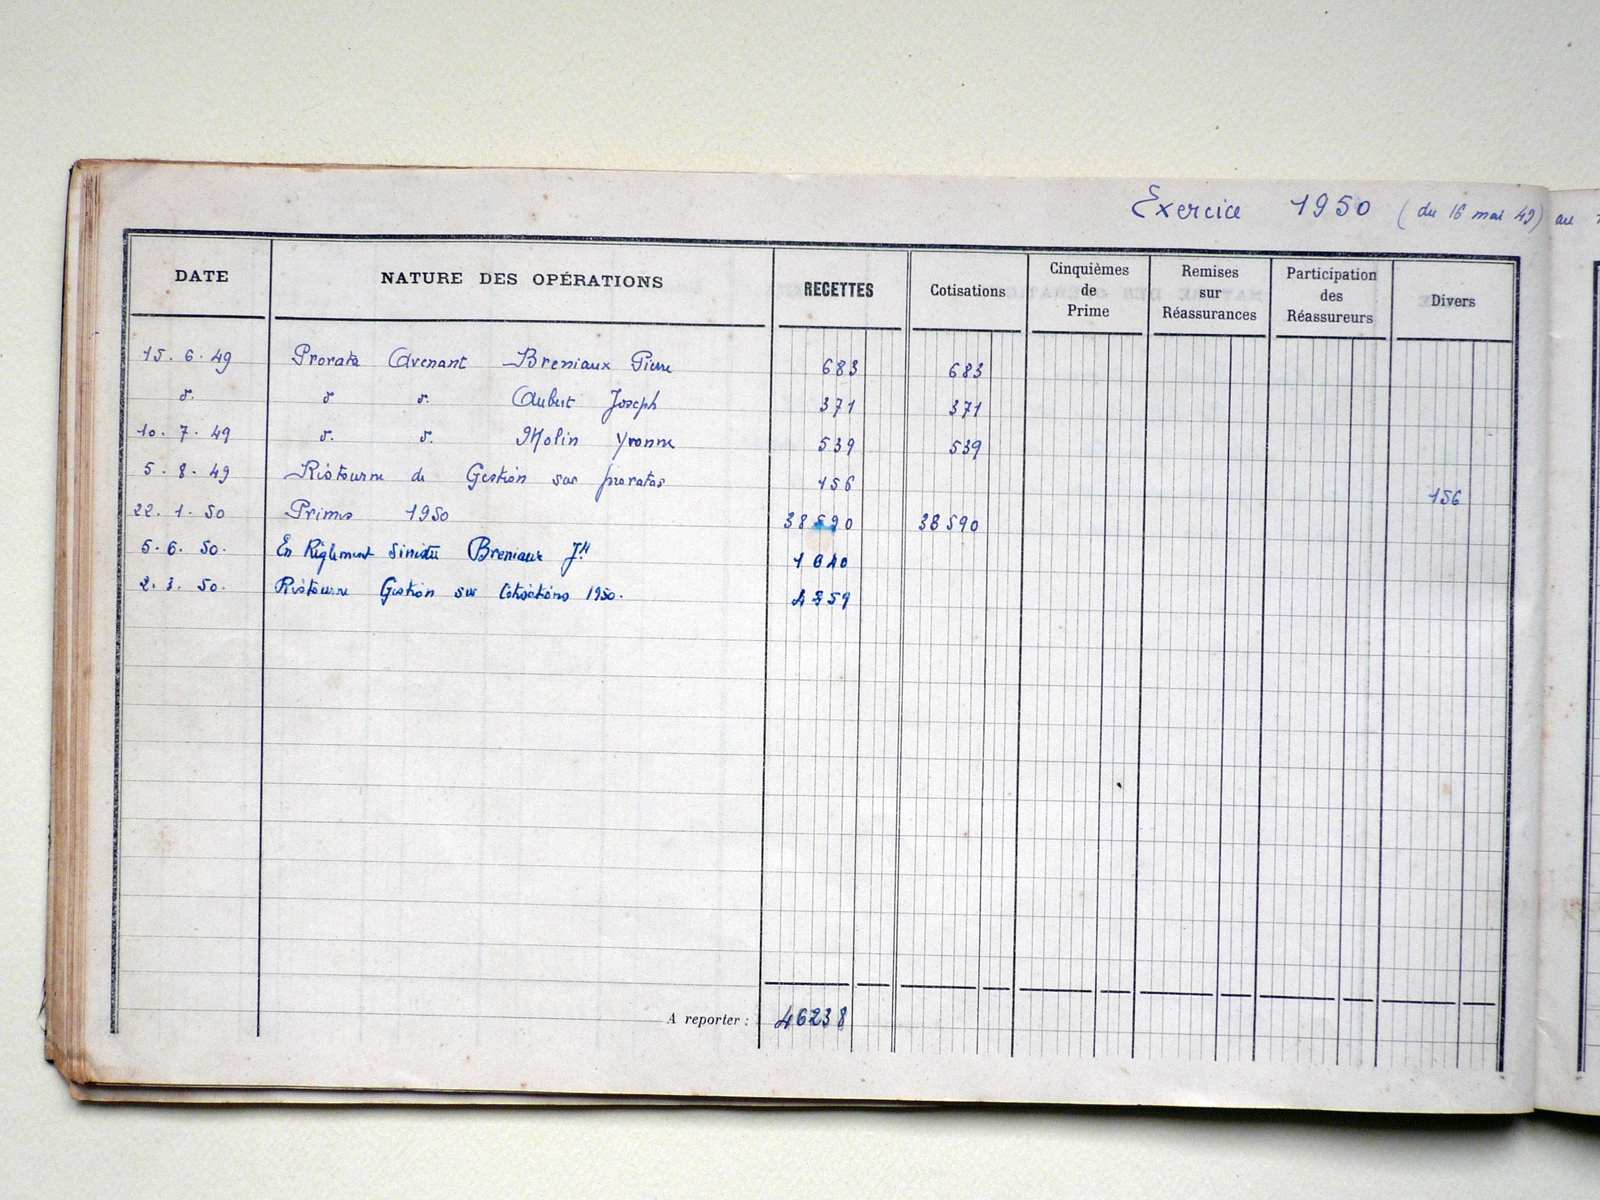 Exercice 1950 (du 16 mai 49) au
DATE NATURE DES OPÉRATIONS RECETTES Cotisations Cinquièmes de Prime Remises sur Réassurances Participation des Réassureurs Divers
15. 6. 49 Prorata Avenant Breniaux Pierre 683 683
d° d° d° Aubert Joseph 371 371
10. 7. 49 d° d° Molin Yvonne 539 539
5. 8. 49 Ristourne de Gestion sur proratas 156 156
22. 1. 50 Primes 1950 38590 38590
5. 6. 50. En Règlement Sinistre Breniaux Jh 1040
2. 3. 50. Ristourne Gestion sur Cotisations 1950. 4859
A reporter : 46238